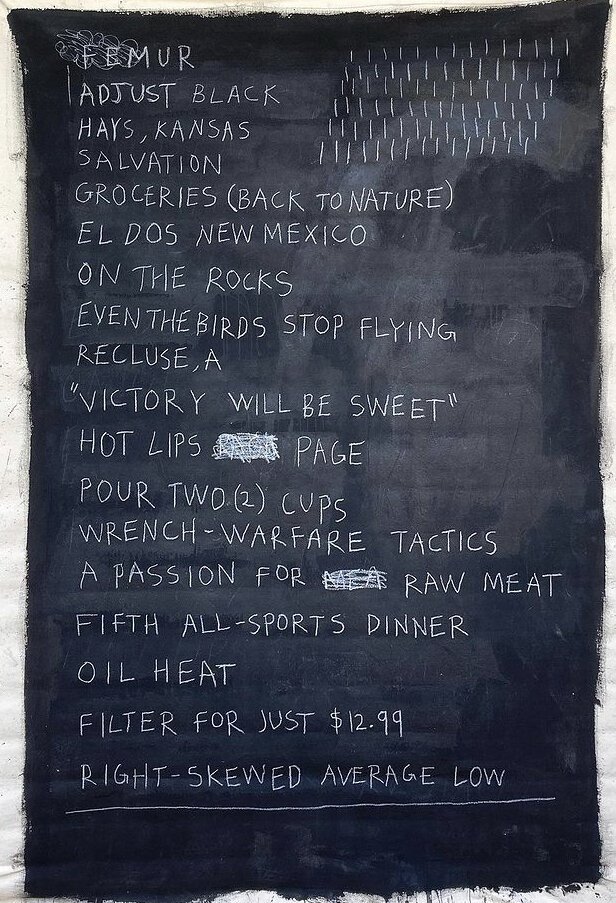 FEMUR
ADJUST BLACK
HAYS, KANSAS
SALVATION
GROCERIES (BACK TO NATURE)
EL DOS NEW MEXICO
ON THE ROCKS
EVEN THE BIRDS STOP FLYING
RECLUSE, A
"VICTORY WILL BE SWEET"
HOT LIPS PAGE
POUR TWO (2) CUPS
WRENCH-WARFARE TACTICS
A PASSION FOR RAW MEAT
FIFTH ALL-SPORTS DINNER
OIL HEAT
FILTER FOR JUST $12.99
RIGHT-SKEWED AVERAGE LOW